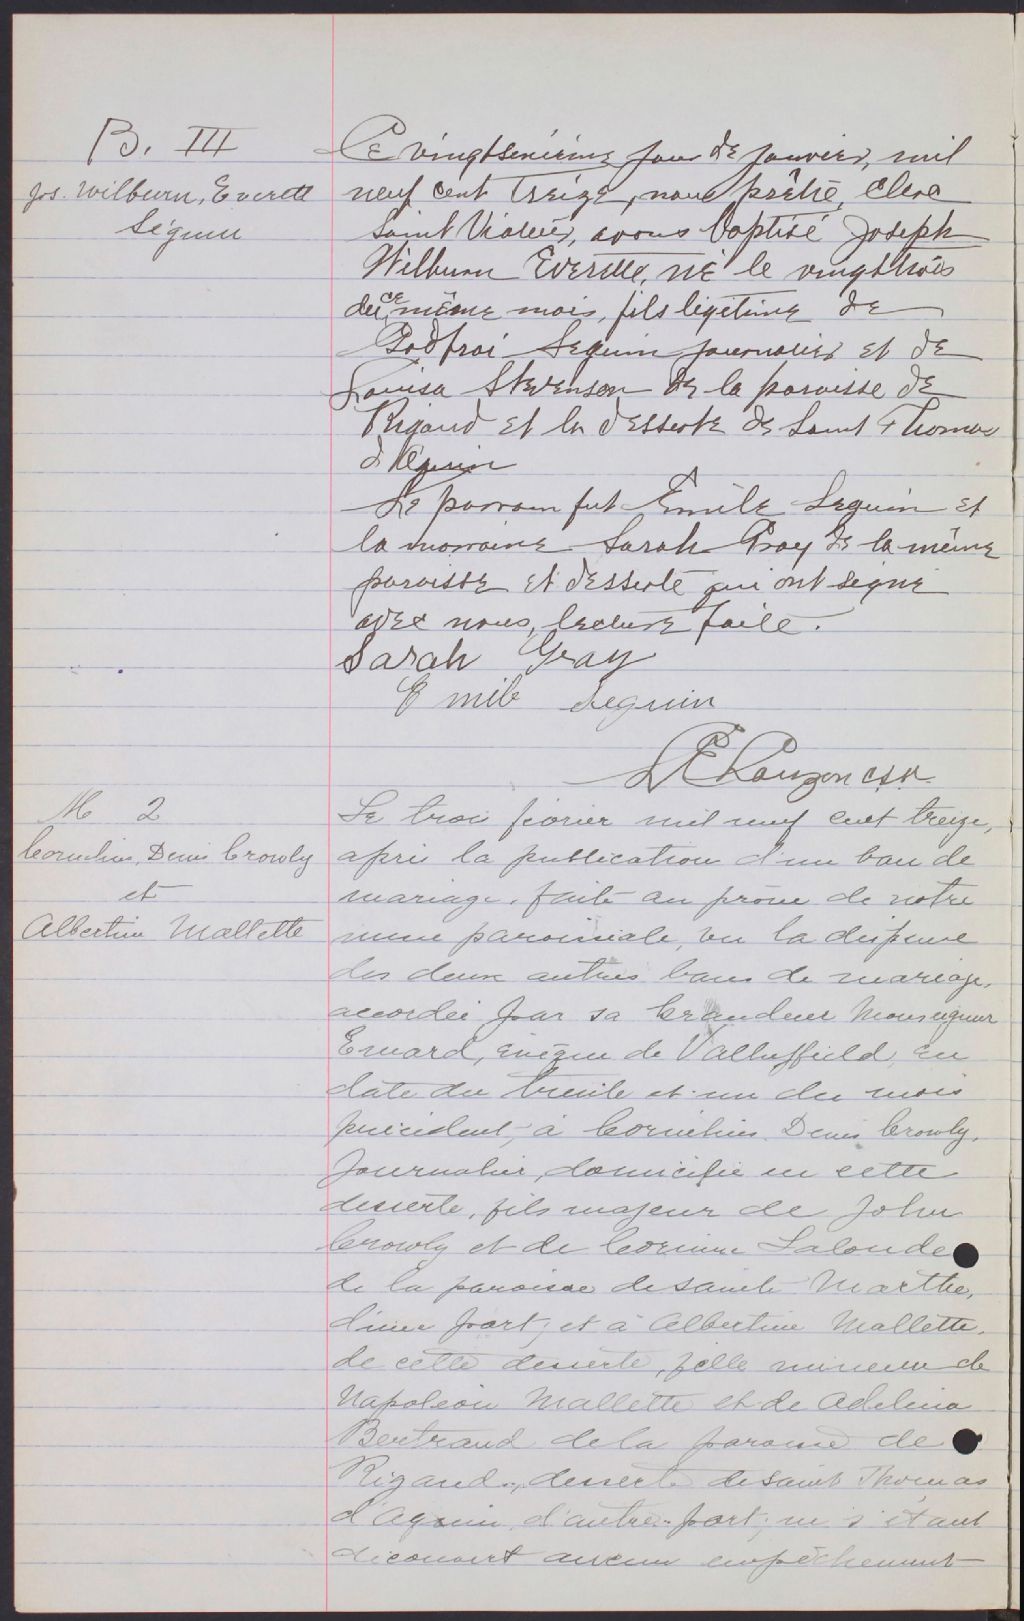 B. III
Jos. Wilburn, Everette
Séguin
Ce vingtsixième jour de janvier, mil
neuf cent treize, nous prêtre, clerc
Saint Viateur, avons baptisé Joseph
Wilburn Everette, né le vingttrois
de ce même mois, fils légitime de
Godfroi Seguin journalier et de
Louisa Stevenson de la paroisse de
Rigaud et la desserte de Saint Thomas
d'Aquin
Le parrain fut Émile Seguin et
la marraine Sarah Gray de la même
paroisse et desserte qui ont signé
avec nous, lecture faite.
Sarah Gray
Emile Seguin
Lauzon csv.
M 2
Cornelius, Denis Crowly
et
Albertine Mallette
Le trois février mil neuf cent treize,
après la publication d'un ban de
mariage, faite au prône de notre
messe paroissiale, vu la dispense
des deux autres bans de mariage,
accordée par sa Grandeur Monseigneur
Emard, évêque de Valleyfield, en
date du trente et un du mois
précédent, à Cornelius Denis Crowly,
journalier, domicilié en cette
desserte, fils majeur de John
Crowly et de Corinne Lalonde
de la paroisse de sainte Marthe,
d'une part, et à Albertine Mallette,
de cette desserte, fille mineure de
Napoléon Mallette et de Adelina
Bertrand de la paroisse de
Rigaud, desserte de saint Thomas
d'Aquin, d'autre part; ne s'étant
découvert aucun empêchement